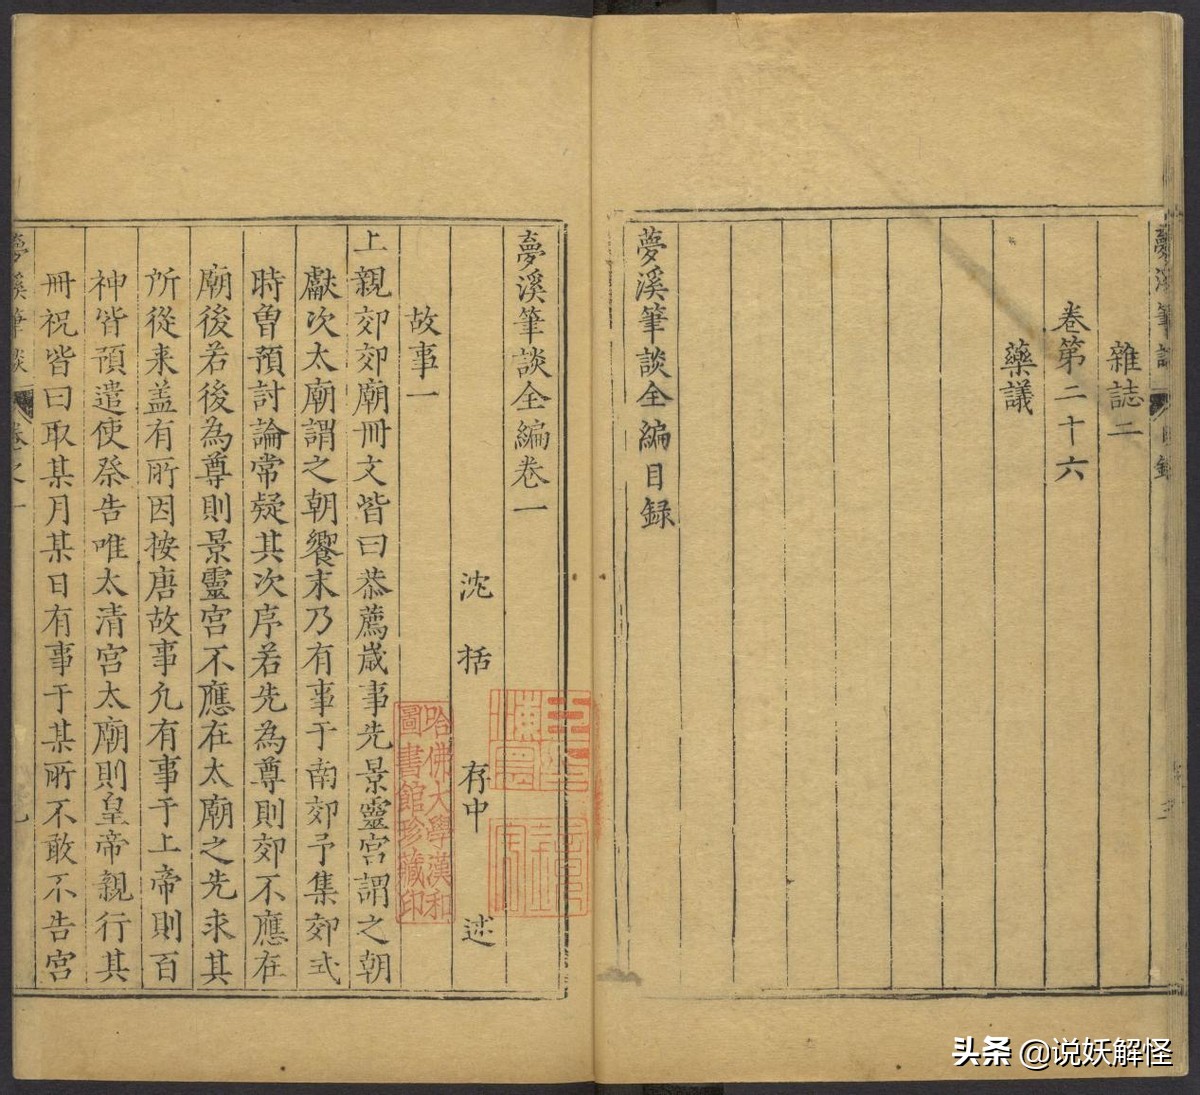 雜誌二
卷第二十六
藥議
夢溪筆談全編目録
夢溪筆談全編卷一
沈括 存中 述
故事一
上親郊郊廟冊文皆曰恭薦歲事先景靈宮謂之朝
獻次太廟謂之朝饗末乃有事于南郊予集郊式
時曽預討論常疑其次序若先為尊則郊不應在
廟後若後為尊則景靈宮不應在太廟之先求其
所從来盖有所因按唐故事凢有事于上帝則百
神皆預遣使祭告唯太清宮太廟則皇帝親行其
冊祝皆曰取某月某日有事于某所不敢不告宮
哈佛大學漢和
圖書館珍藏印
头条 @说妖解怪